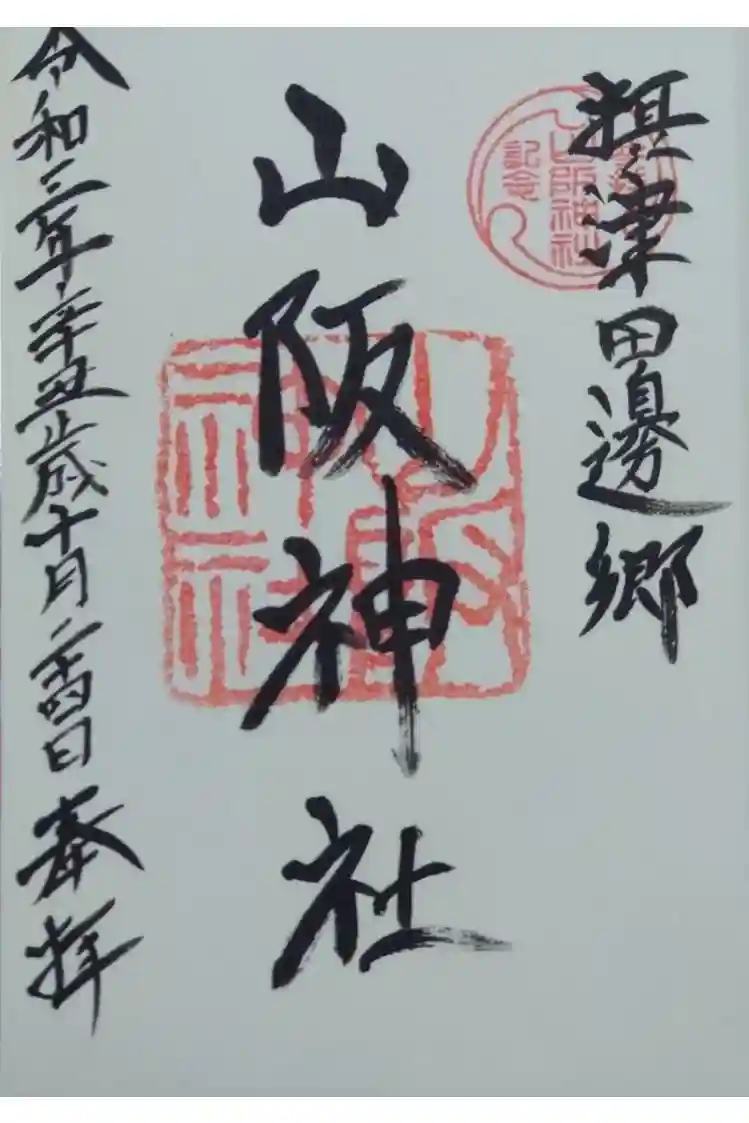 摂津田邊郷
山阪神社
記念
山阪神社
令和三年辛丑歳十月二十四日奉拝
山阪神社